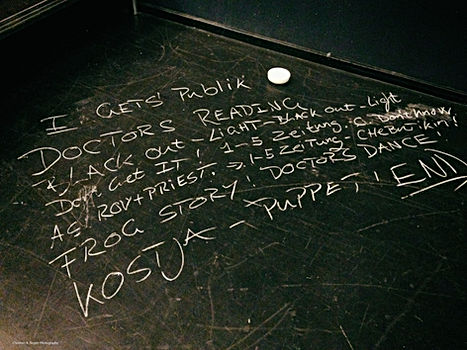 I GETS' Publik
DOCTORS READING
BLACK out - LIGHT - BLACK out - Light
Don't Get IT! 1-5 Zeitung. C. Don't know
AS ROY + PRIEST. => 1-5 Zeitung - CHEBUTiKiN!
FROG STORY! DOCTORS DANCE
KOSTJA - PUPPET! END